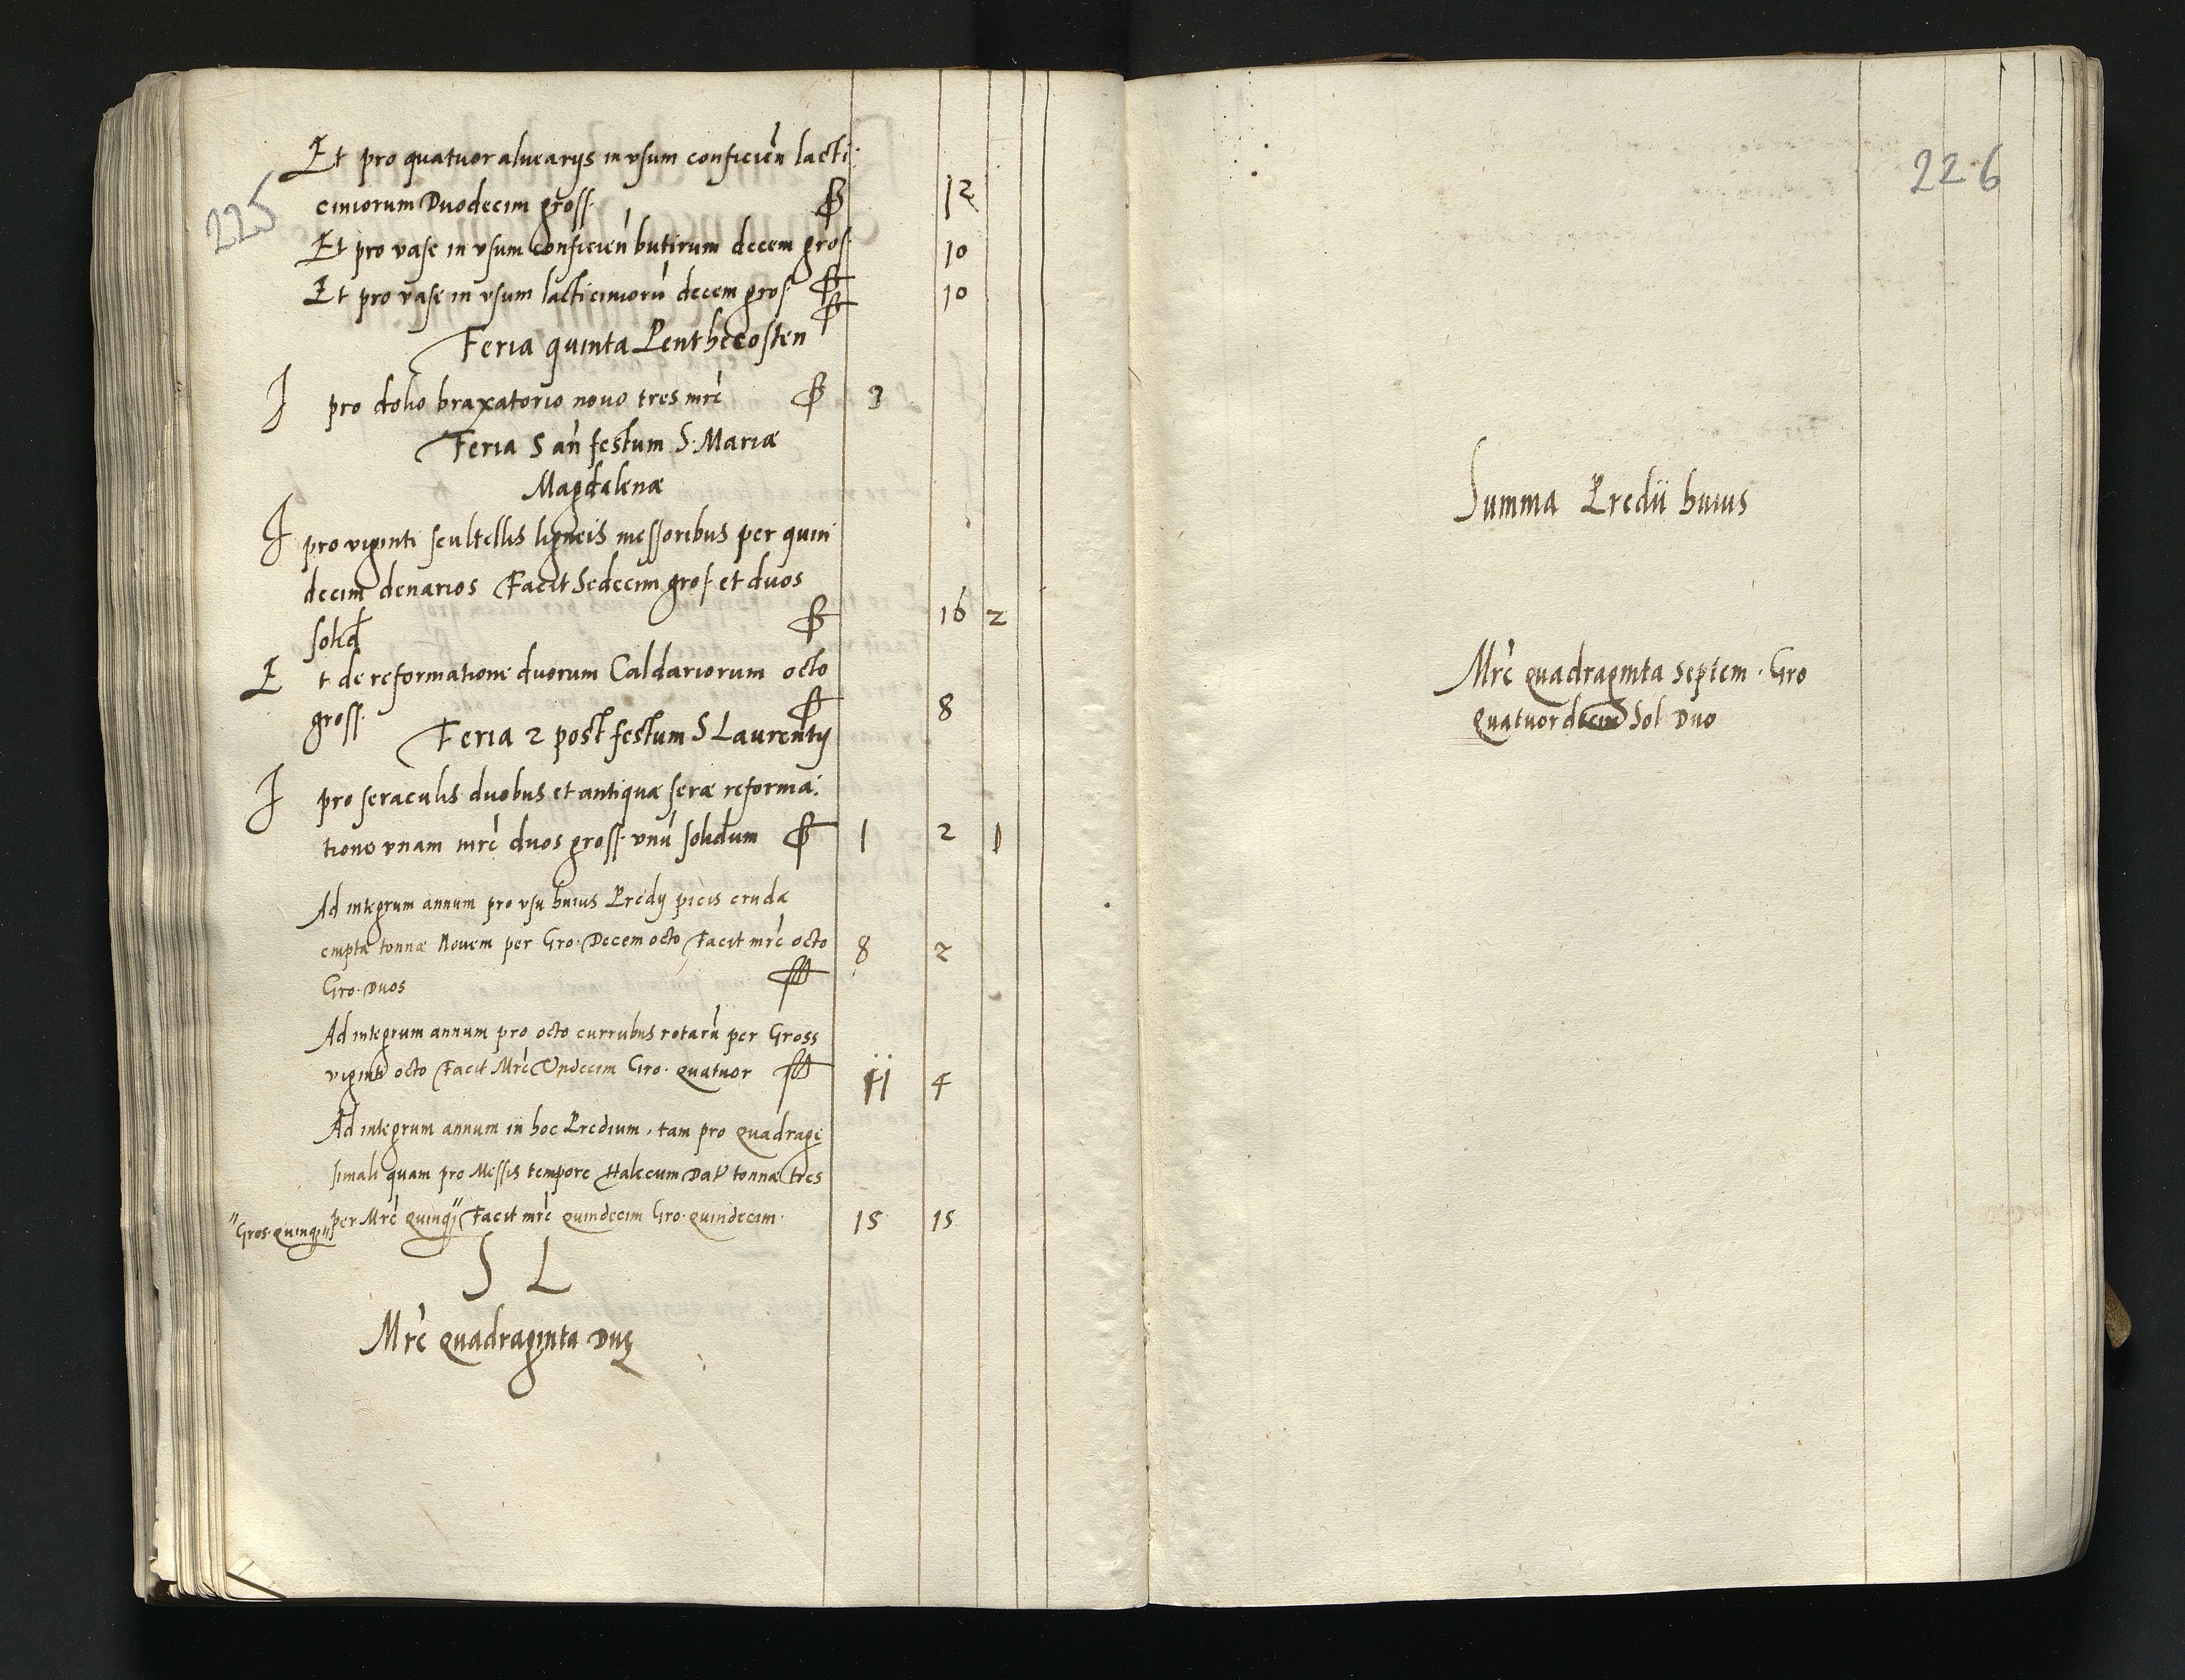 225
Et pro quatuor alvearijs in vsum conficień lacti:
ciniorum Duodecim gross. 12
Et pro vase in vsum conficień butirum decem gros. 10
Et pro vase in vsum lacticiniorú decem gros 10
Feria quinta Penthecosten
I pro dolio braxatorio novo tres mrć 3
Feria 5 ań festum S. Mariæ
Magdalenæ
I pro viginti scultellis ligneis messoribus per quin
decim denarios Facit Sedecim gros. et duos
solid 16 2
Et de reformatione duorum Caldariorum octo
gross. 8
Feria 2 post festum S Laurentij
I pro seraculis duobus et antiquæ seræ reforma:
tione vnam mrć duos gross. vnú solidum 1 2 1
Ad integrum annum pro vsu huius Predij picis crudæ
emptæ tonnæ Novem per Gro. Decem octo Facit mrć octo 8 2
Gro. Duos
Ad integrum annum pro octo curribus rotarú per Gross
viginti octo Facit Mrć Vndecim Gro. quatuor 11 4
Ad integrum annum in hoc Predium, tam pro quadrage
simali quam pro Messis tempore Halecum Dat' tonnæ tres
per Mrć quinq3 Facit mrć quindecim Gro. quindecim. 15 15
"Gros. quinq3"
S L
Mrć quadraginta Duę
226
Summa Predii huius
Mrć quadraginta septem. Gro
quatuordecim Sol Duo